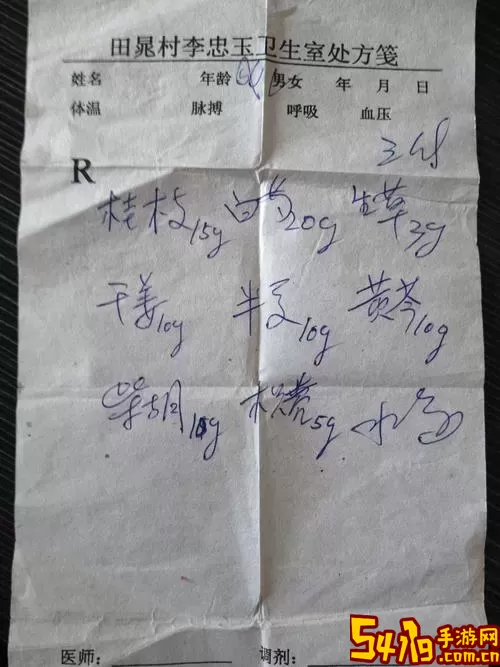 田晁村李忠玉卫生室处方笺
姓名 年龄 男女 年 月 日
体温 脉搏 呼吸 血压
R 三付
桂枝15g 白芍20g 生草3g
干姜10g 半夏10g 黄芩10g
柴胡15g 枳壳5g
医师: 调剂:
5419手游网
com.cn